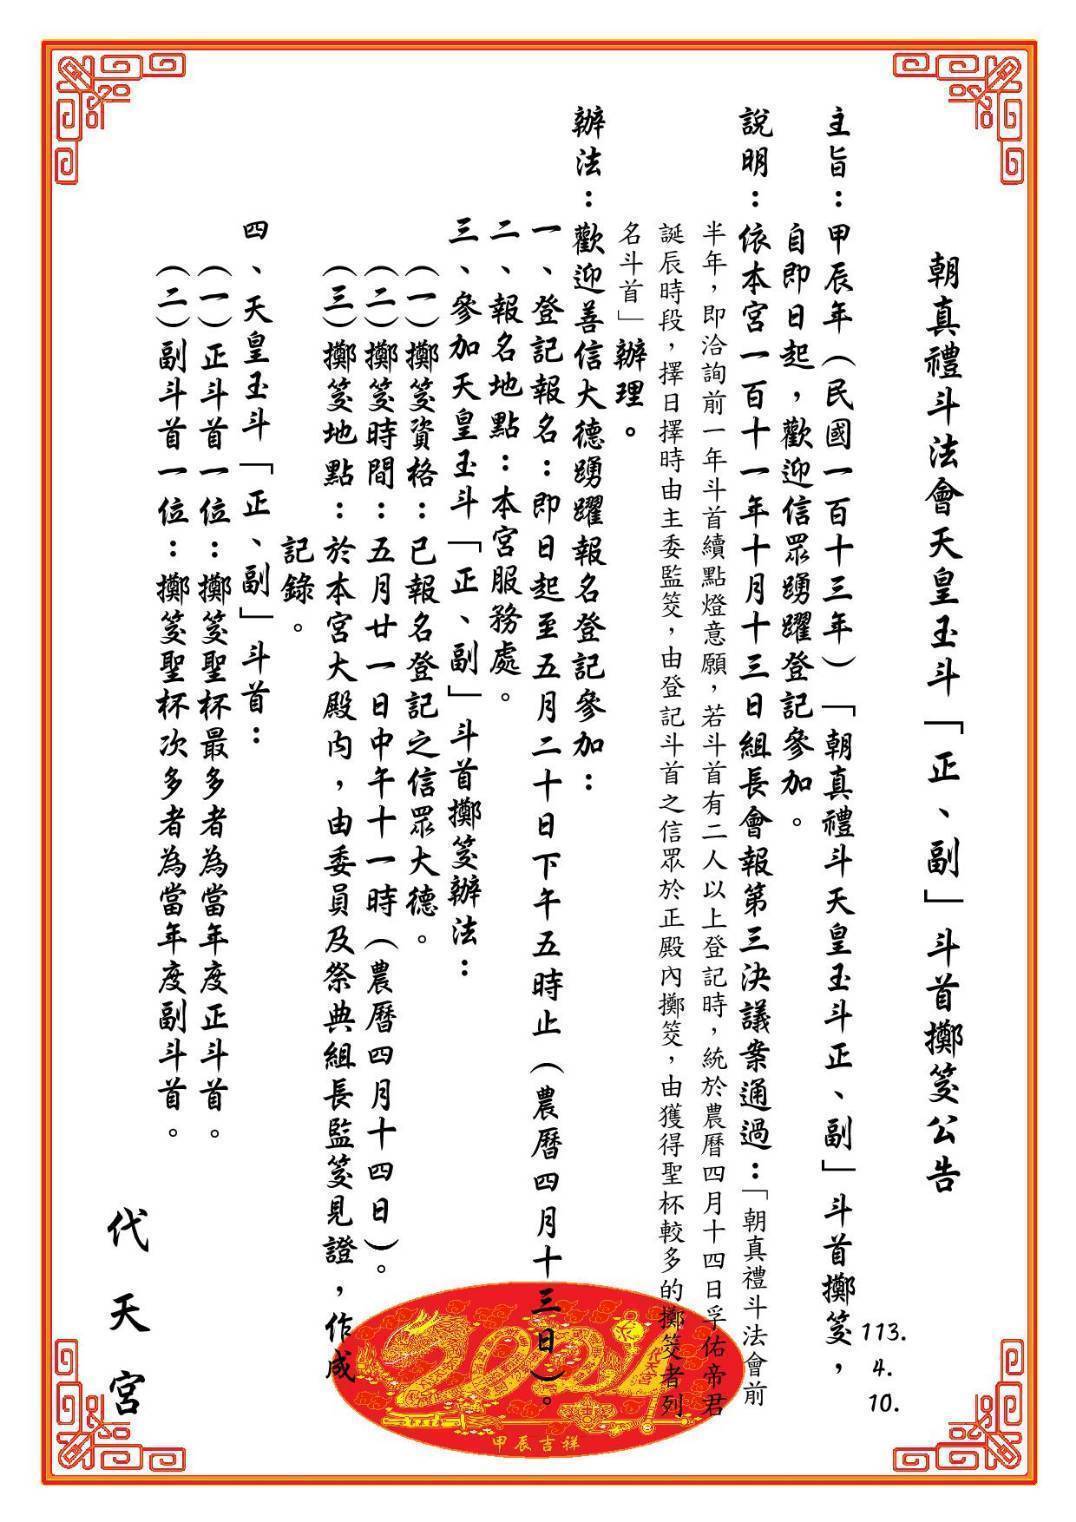 朝真禮斗法會天皇玉斗「正、副」斗首擲筊公告
113.
4.
10.
主旨：甲辰年（民國一百十三年）「朝真禮斗天皇玉斗正、副」斗首擲筊，
自即日起，歡迎信眾踴躍登記參加。
說明：依本宮一百十一年十月十三日組長會報第三決議案通過：「朝真禮斗法會前
半年，即洽詢前一年斗首續點燈意願，若斗首有二人以上登記時，統於農曆四月十四日孚佑帝君
誕辰時段，擇日擇時由主委監筊，由登記斗首之信眾於正殿內擲筊，由獲得聖杯較多的擲筊者列
名斗首」辦理。
辦法：歡迎善信大德踴躍報名登記參加：
一、登記報名：即日起至五月二十日下午五時止（農曆四月十三日）。
二、報名地點：本宮服務處。
三、參加天皇玉斗「正、副」斗首擲筊辦法：
（一）擲筊資格：已報名登記之信眾大德。
（二）擲筊時間：五月廿一日中午十一時（農曆四月十四日）。
（三）擲筊地點：於本宮大殿內，由委員及祭典組長監筊見證，作成
記錄。
四、天皇玉斗「正、副」斗首：
（一）正斗首一位：擲筊聖杯最多者為當年度正斗首。
（二）副斗首一位：擲筊聖杯次多者為當年度副斗首。
代天宮
2024
代天宮
甲辰吉祥